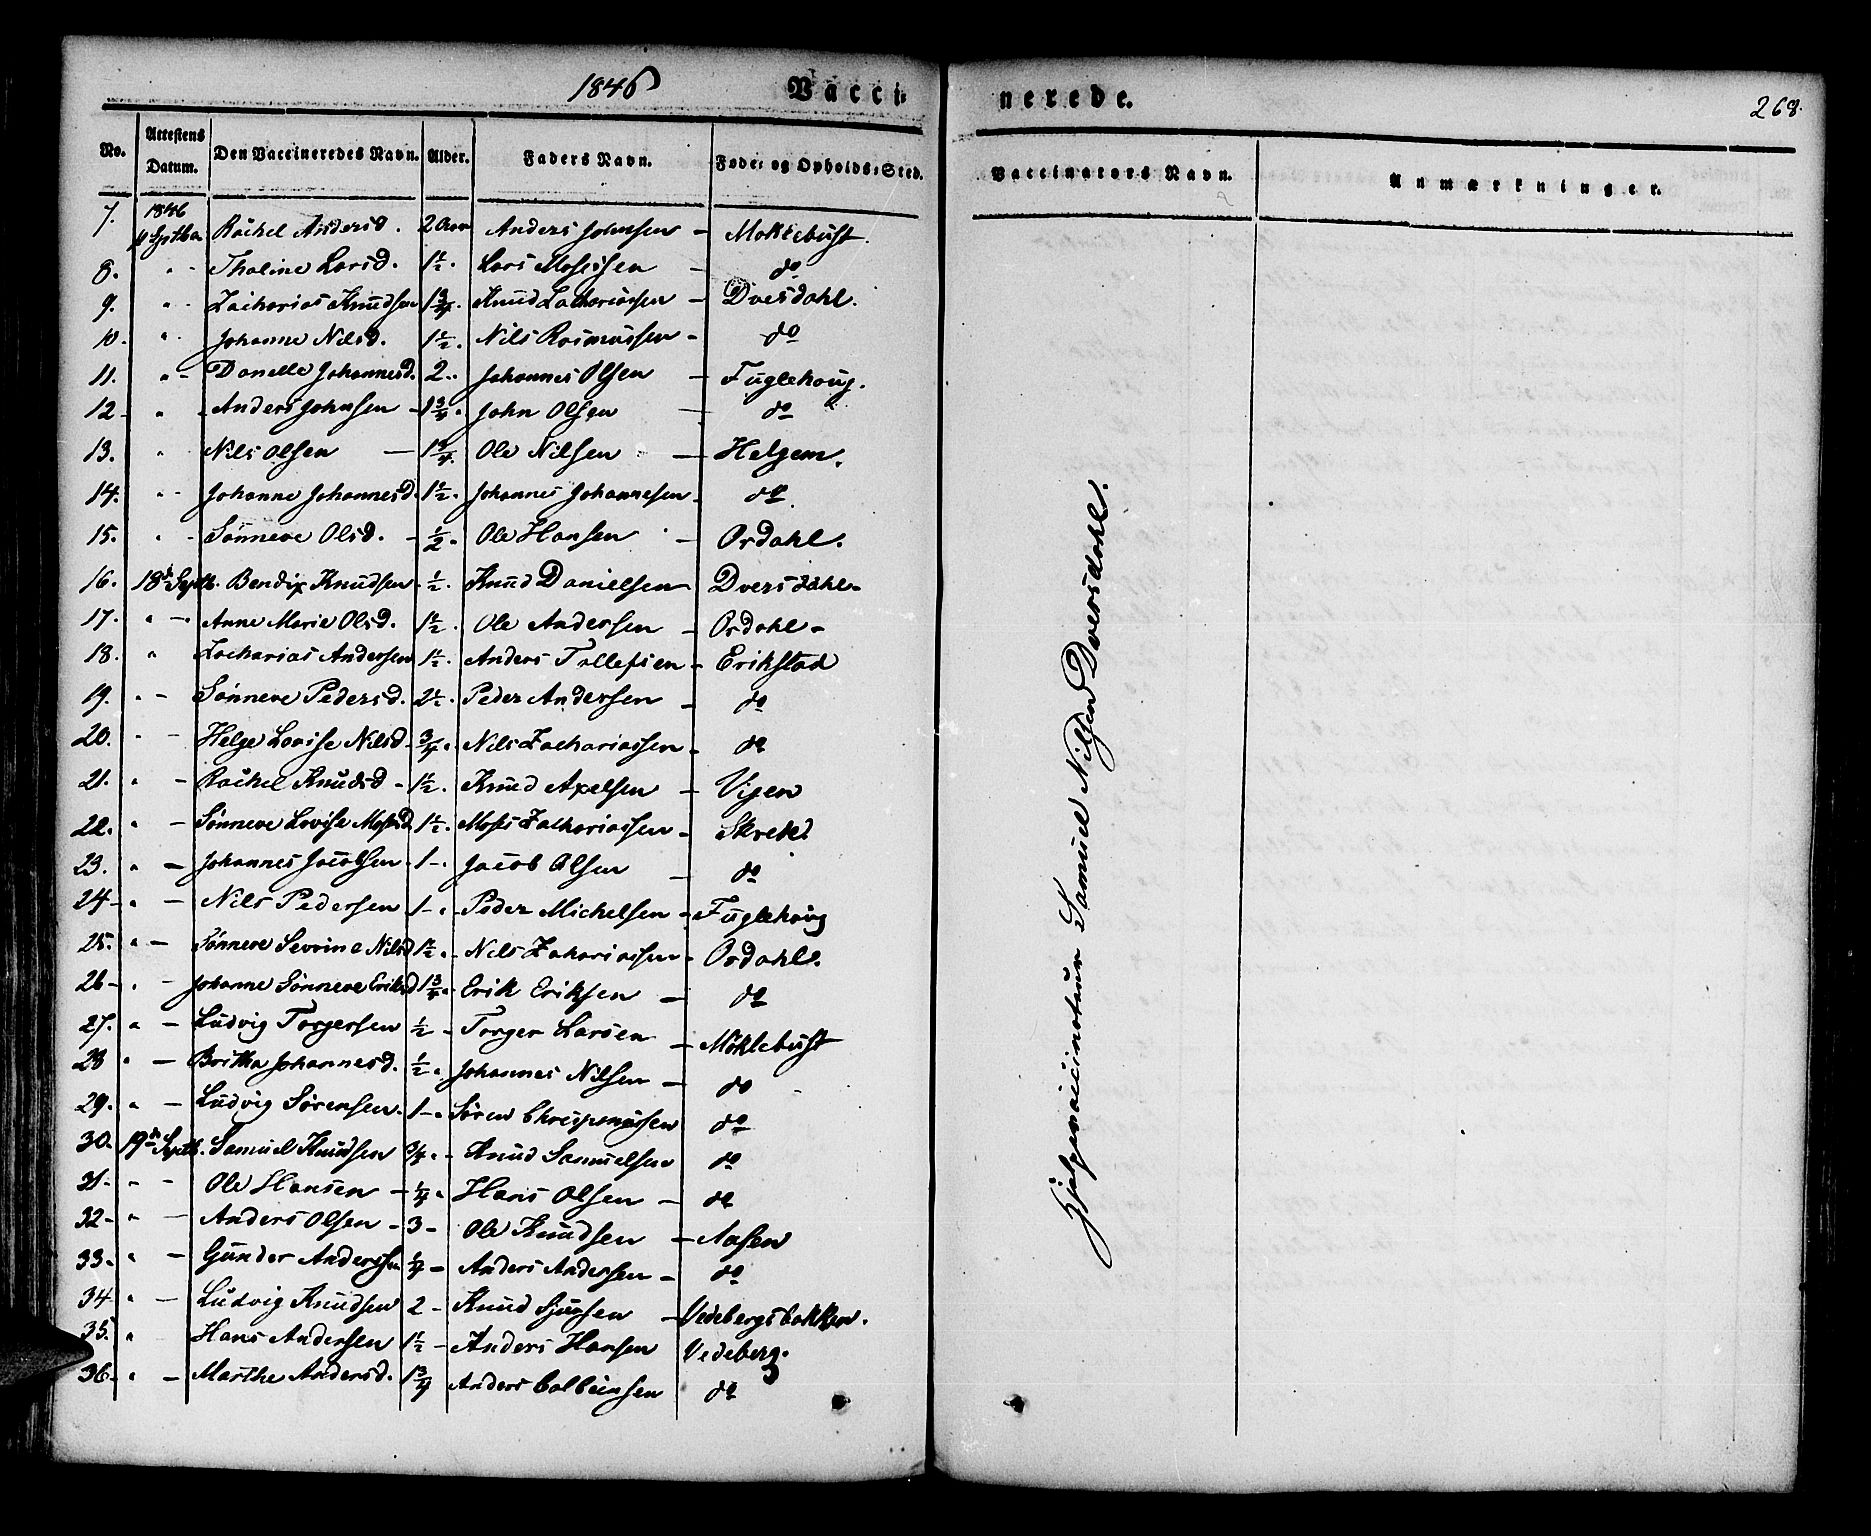 1846 Vacci-
nerede.
268.
No. Attestens Datum. Den Vaccineredes Navn. Alder. Faders Navn. Føde- og Opholds-Sted.
Vaccinators Navn. Anmærkninger.
7. 1846 Septbr Rachel Andersd. 2 Aar Anders Johnsen - Moklebust.
8. " - Thaline Larsd. 1 1/2. Lars Mosessen - do
9. " - Zacharias Knudsen 1 3/4. Knud Zachariassen - Dvesdahl.
10. " - Johanne Nilsd. 1 1/2. Nils Rasmussen - do
11. " - Danelle Johannesd. 2.. Johannes Olsen - Fuglehoug.
12 - " - Anders Johnsen - 1 3/4. John Olsen - do
13. " Nils Olsen - 1 3/4. Ole Nilsen - Helgem.
14. " - Johanne Johannesd. 1 1/2. Johannes Johannesen - do
15. " - Sønneve Olsd. - 1/2. Ole Hansen - Ordahl.
16. 18de Septb. Bendix Knudsen - 1/2. Knud Danielsen - Dversdahl -
17. " - Anne Marie Olsd. 1 1/2. Ole Andersen - Ordahl -
18. " Zacharias Andersen 1 1/2. Anders Tollefsen - Erikstad
19. " - Sønneve Pedersd. 2 1/2. Peder Andersen - do
20. " - Helge Lovise Nilsd - 3/4. Nils Zachariassen - do
21. " - Rachel Knudsd - 1 1/2. Knud Axelsen - Vigen
22. " - Sønneve Lovise Mosesd. 1 1/2. Moses Zachariassen - Skrek.
23. " - Johannes Jacobsen - 1 -. Jacob Olsen - do
24 - " - Nils Pedersen 1 -. Peder Michelsen - Fuglehoug
25. " - Sønneve Sevrine Nilsd 1 1/2. Nils Zakariassen - Ordahl.
26 - " - Johanne Sønneve Eriksd 1 3/4. Erik Eriksen - do
27. " - Ludvig Torgersen 1/2 - Torger Larsen - Möklebust
28 " - Britha Johannesd. 1/2. Johannes Nilsen - do
29. " - Ludvig Sørensen. 1 -. Søren - do
30. 19de Septb. Samuel Knudsen 3/4. - Knud Samuelsen do
31. " - Ole Hansen - 1/4. Hans Olsen - do
32 - " - Anders Olsen - 3 - Ole Knudsen - Aasen
33. " - Gunder Anderssen 1/4 - Anders Andersen - do
34 " - Ludvig Knudsen 2 - Knud Sjursen - Vedebergsbakken.
35. " Hans Andersen 1 1/2 - Anders Hansen Vedeberg.
36. " - Marthe Andersd. 1 3/4 Anders Colbeinsen do
Hjælpevaccinateur Samuel Nilsen Dversdahl.